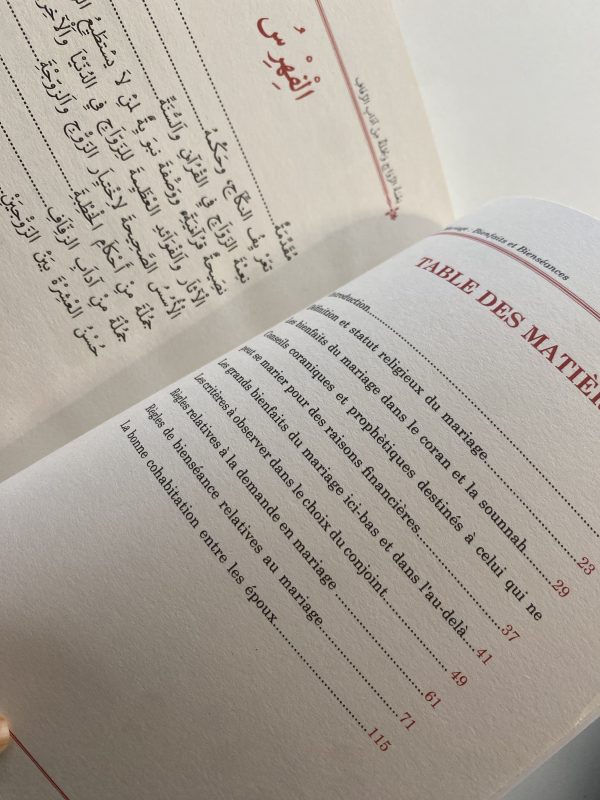 نعمة الزواج وجملة من آداب الزفاف
الْفِهْرِسُ
مُقَدِّمَةٌ
تَعْرِيفُ النِّكَاحِ، وَحُكْمُهُ
نِعْمَةُ الزَّوَاجِ فِي الْقُرْآنِ وَالسُّنَّةِ
نَصِيحَةٌ قُرْآنِيَّةٌ وَوَصْفَةٌ نَبَوِيَّةٌ لِمَنْ لَا يَسْتَطِيعُ
الْآثَارُ وَالْفَوَائِدُ الْعَظِيمَةُ لِلزَّوَاجِ فِي الدُّنْيَا وَالْآخِرَةِ
الْأُسُسُ الصَّحِيحَةُ لِاخْتِيَارِ الزَّوْجِ وَالزَّوْجَةِ
جُمْلَةٌ مِنْ أَحْكَامِ الْخِطْبَةِ
جُمْلَةٌ مِنْ آدَابِ الزِّفَافِ
حُسْنُ الْعِشْرَةِ بَيْنَ الزَّوْجَيْنِ
Bienfaits et Bienséances
TABLE DES MATIÈR
Introduction
Définition et statut religieux du mariage
Les bienfaits du mariage dans le coran et la sounnah 23
Conseils coraniques et prophétiques destinés à celui qui ne
peut se marier pour des raisons financières 29
Les grands bienfaits du mariage ici-bas et dans l'au-delà 37
Les critères à observer dans le choix du conjoint 41
Règles relatives à la demande en mariage 49
Règles de bienséance relatives au mariage 61
La bonne cohabitation entre les époux 71
115